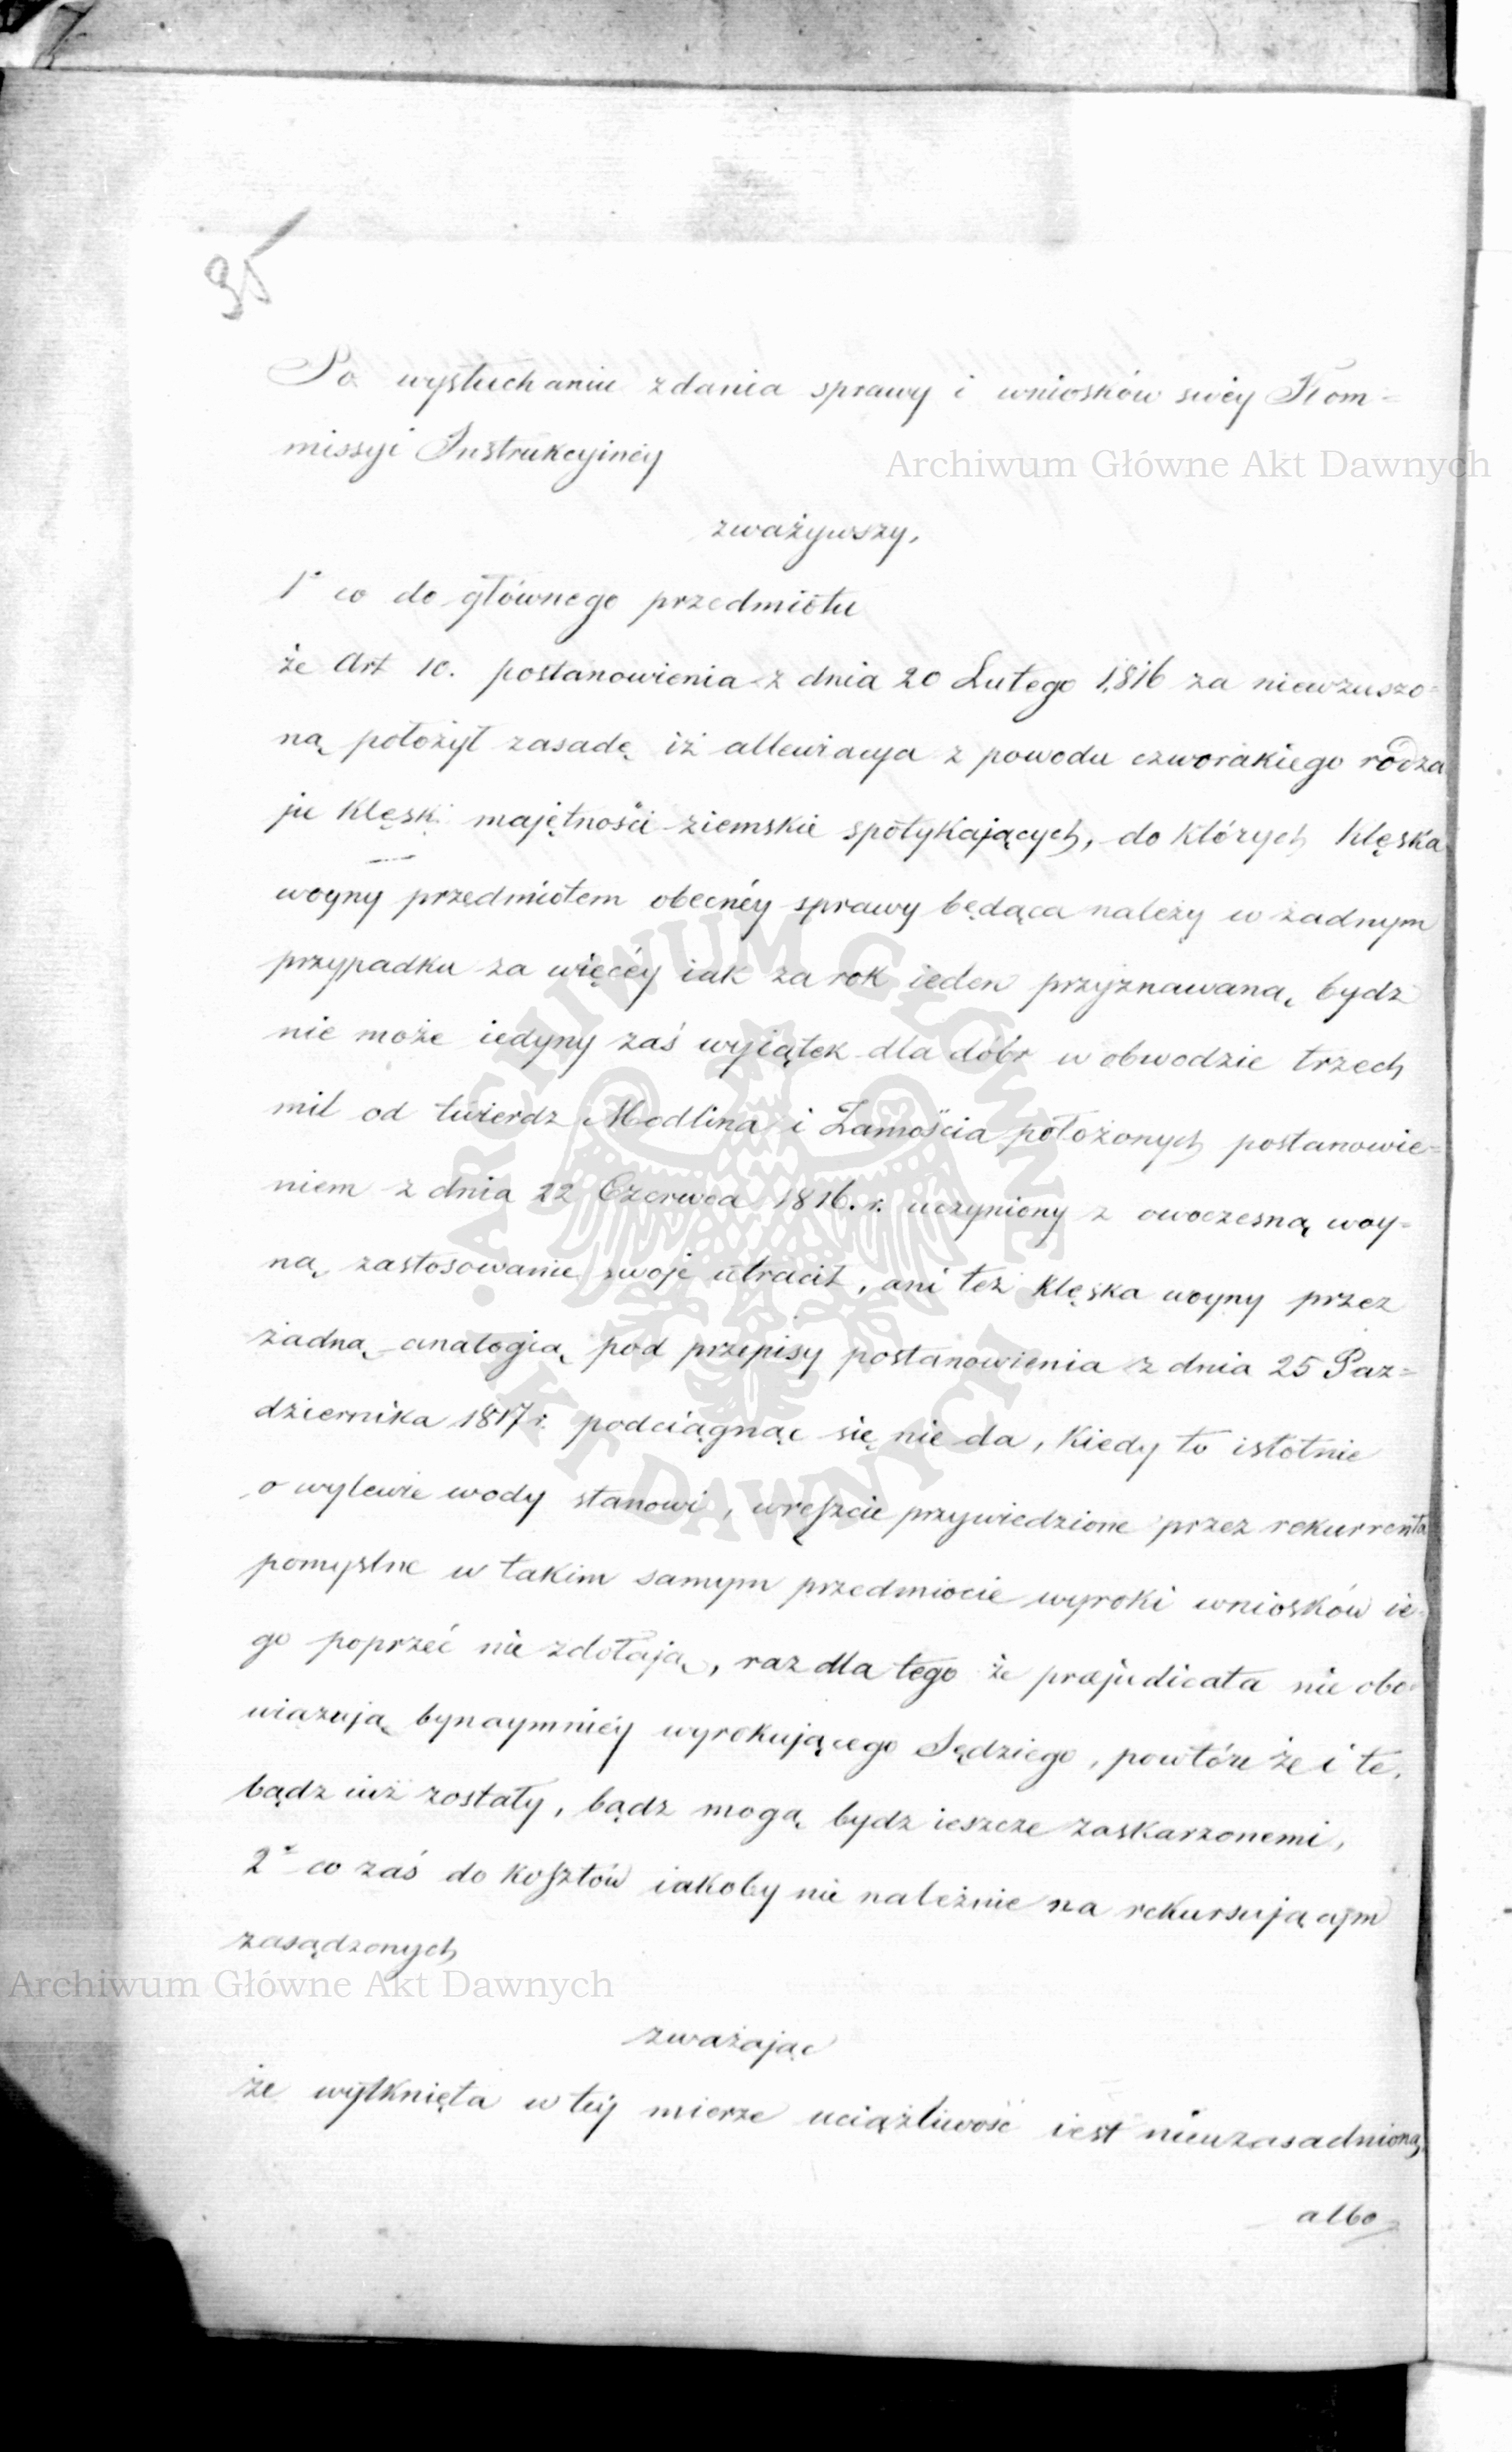 95
Po wysłuchaniu zdania sprawy i wniosków swéy Kom=
missyi Instrukcyinéy
Archiwum Główne Akt Dawnych
zważywszy,
1° co do głównego przedmiotu
że Art 10. postanowienia z dnia 20 Lutego 1816 za niewzuszo=
ną położył zasadę iż allewiacya z powodu czworakiego rodza
ju klęsk majętności ziemskie spotykających, do których klęska
woyny przedmiotem obecnéy sprawy będąca należy w żadnym
przypadku za więcéy iak za rok ieden przyznawaną bydz
nie może iedyny zaś wyiątek dla dóbr w obwodzie trzech
mil od twierdz Modlina i Zamościa położonych postanowie=
niem z dnia 22 Czerwca 1816. r. uczyniony z owoczesną woy=
ną zastosowanie swoje utracił, ani też klęska woyny przez
żadną analogią pod przepisy postanowienia z dnia 25 Paz=
dziernika 1817 r. podciągnąc się nie da, kiedy to istotnie
o wylewie wody stanowi, wreszcie przywiedzione przez rekurrenta
pomyslne w takim samym przedmiocie wyroki wniosków ie=
go poprzeć nie zdołają, raz dla tego że præjudicata nie obo=
wiązują bynaymniéy wyrokującego Sędziego, powtóre że i te,
bądz iuż zostały, bądz mogą bydz ieszcze zaskarzonemi,
2° co zaś do kosztów iakoby nie należnie na rekursującym
zasądzonych
Archiwum Główne Akt Dawnych
zważając
że wytknięta w téy mierze uciążliwość iest nieuzasadnioną,
albo
ARCHIWUM GŁÓWNE AKT DAWNYCH